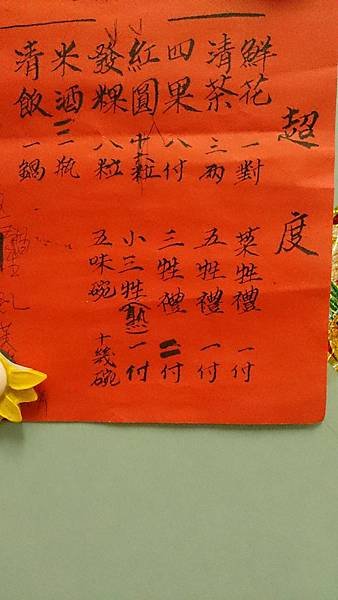 超度
鮮花 一對
清茶 三初
四果 八付
紅圓 十六粒
發粿 八粒
米酒 二瓶
清飯 一鍋
菜牲禮 一付
五牲禮 一付
三牲禮 二付
小三牲(熟) 一付
五味碗 十幾碗